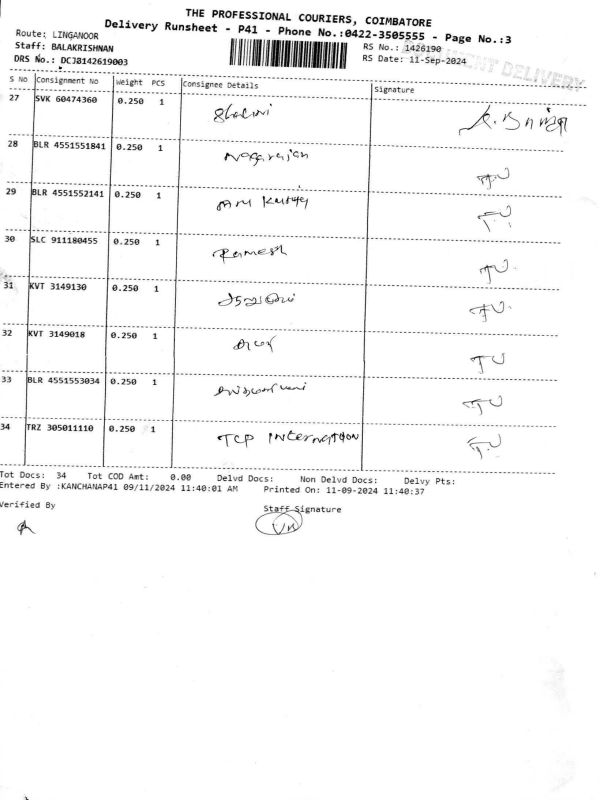 THE PROFESSIONAL COURIERS, COIMBATORE
Delivery Runsheet - P41 - Phone No.:0422-3505555 - Page No.:3
Route: LINGANOOR
Staff: BALAKRISHNAN RS No.: 1426190
DRS No.: DCJ0142619003 RS Date: 11-Sep-2024
DOCUMENT DELIVERY
S No Consignment No Weight PCS Consignee Details Signature
27 SVK 60474360 0.250 1
28 BLR 4551551841 0.250 1 Nagarajan
29 BLR 4551552141 0.250 1
30 SLC 911180455 0.250 1 Ramesh
31 KVT 3149130 0.250 1
32 KVT 3149018 0.250 1
33 BLR 4551553034 0.250 1
34 TRZ 305011110 0.250 1 TCP INternation
Tot Docs: 34 Tot COD Amt: 0.00 Delvd Docs: Non Delvd Docs: Delvy Pts:
Entered By :KANCHANAP41 09/11/2024 11:40:01 AM Printed On: 11-09-2024 11:40:37
Verified By Staff Signature